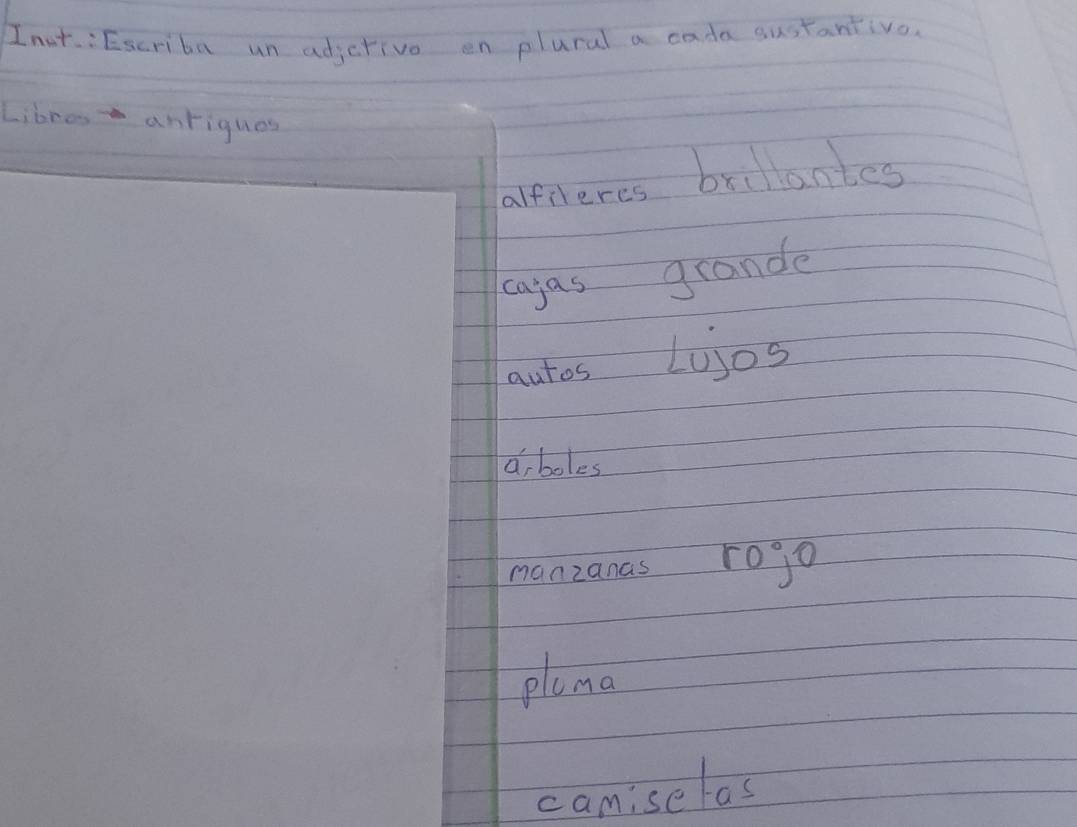 Inst.: Escriba un adjetivo en plural a cada sustantivo.
Libros → antiguos
alfileres brillantes
cajas grande
autos Lujos
árboles
manzanas rojo
pluma
camisetas